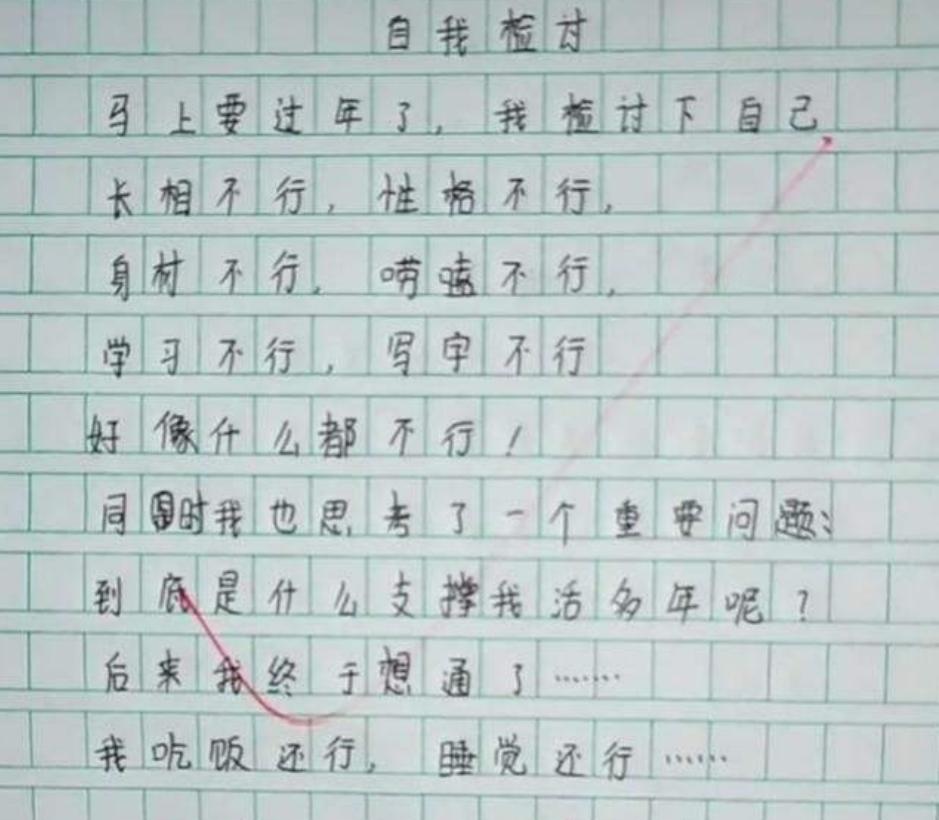 自我检讨
马上要过年了，我检讨下自己
长相不行，性格不行，
身材不行，唠嗑不行，
学习不行，写字不行
好像什么都不行！
同时我也思考了一个重要问题：
到底是什么支撑我活多年呢？
后来我终于想通了……
我吃饭还行，睡觉还行……